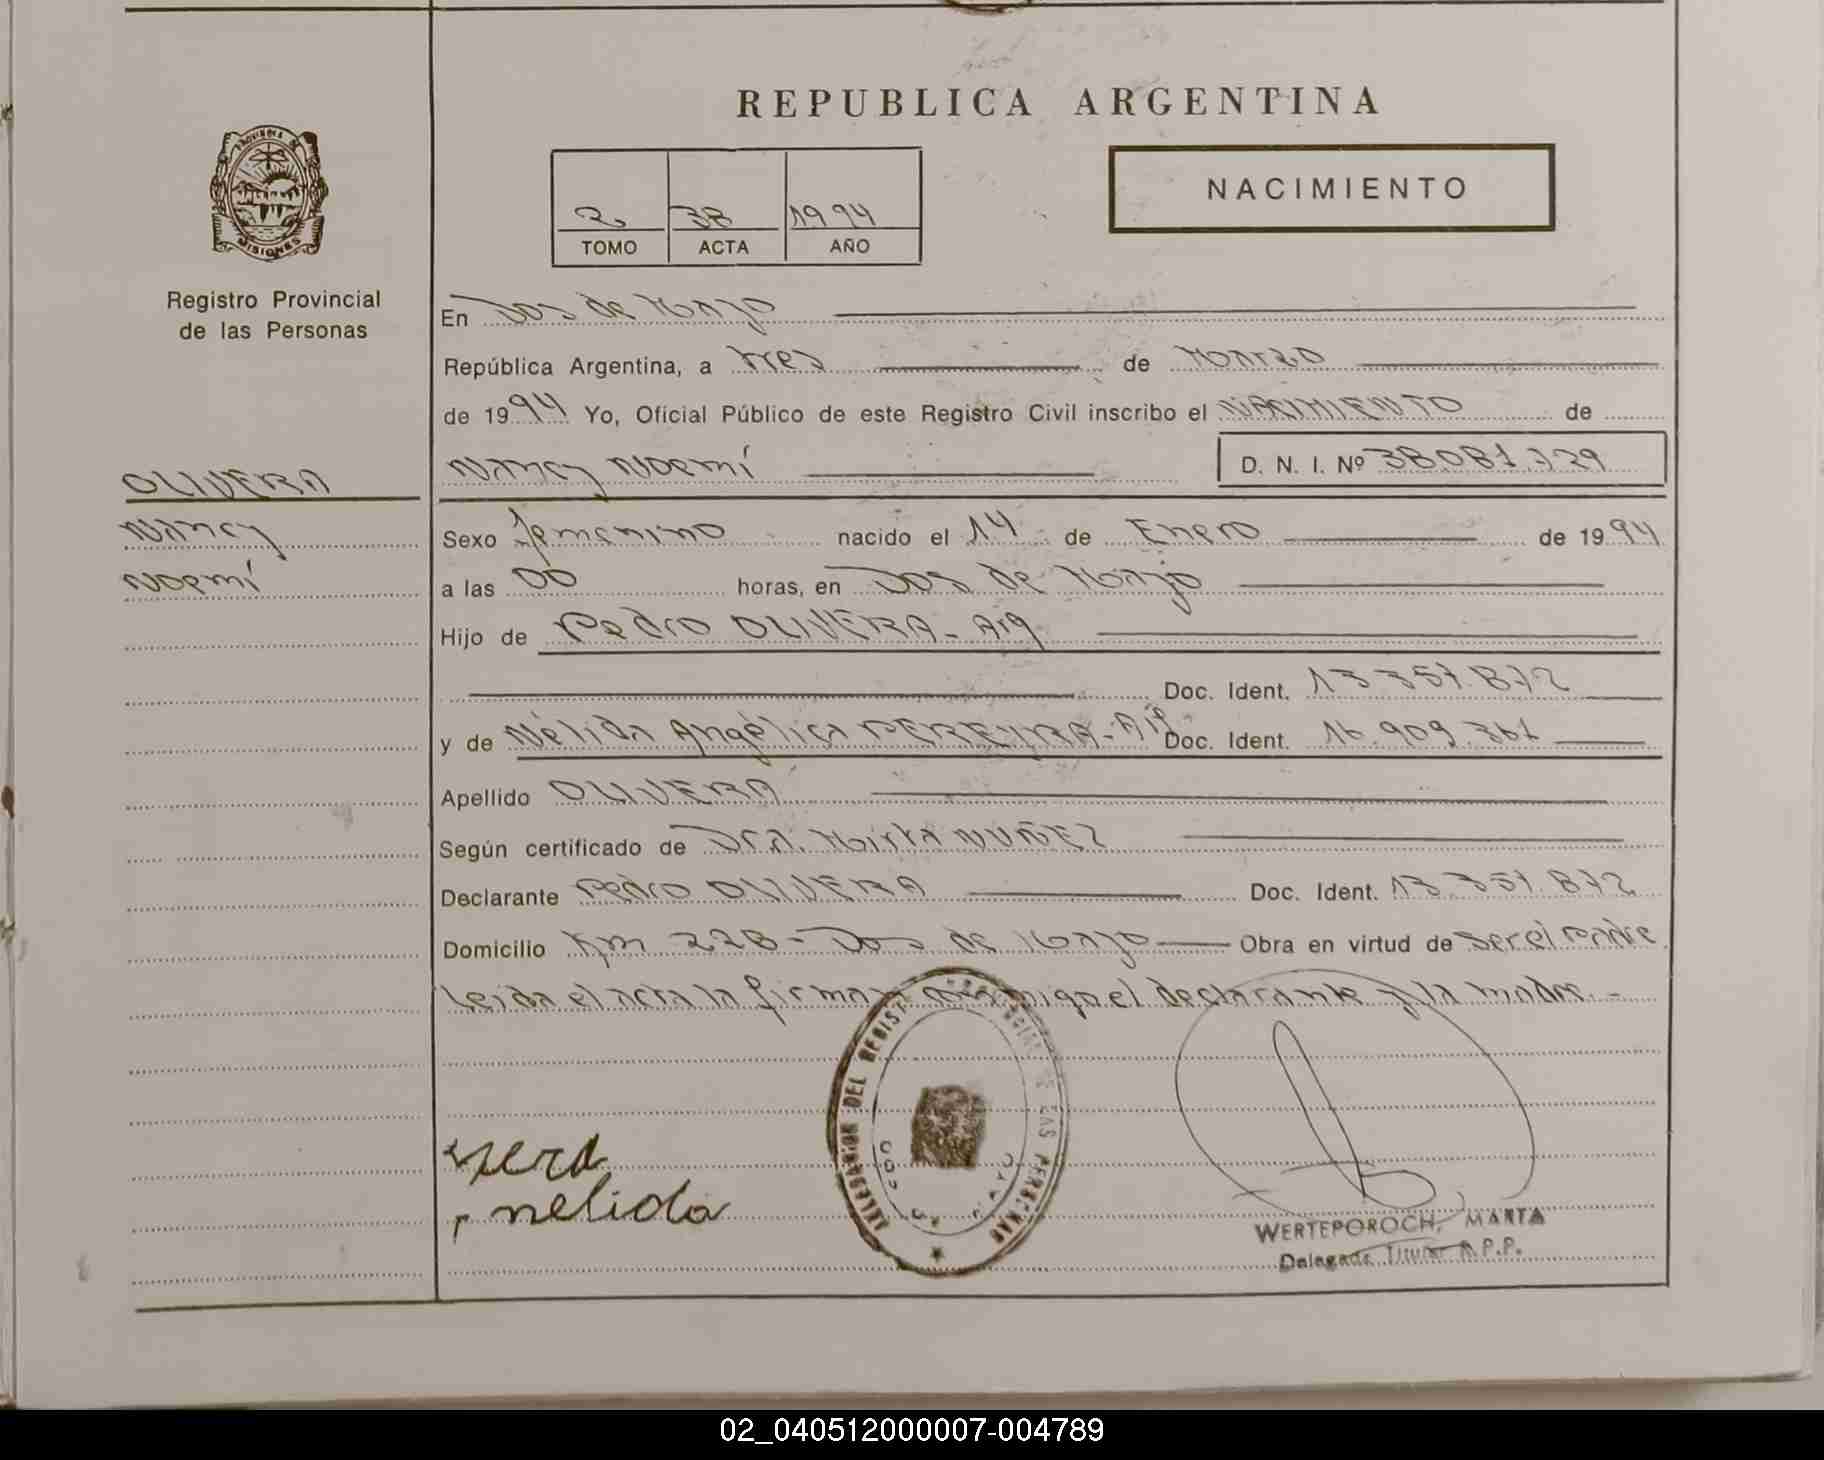 REPUBLICA ARGENTINA
PROVINCIA DE
MISIONES
Registro Provincial
de las Personas
NACIMIENTO
2 38 1994
TOMO ACTA AÑO
En Dos de Mayo
República Argentina, a tres de Marzo
de 1994 Yo, Oficial Público de este Registro Civil inscribo el NACIMIENTO de
OLIVERA
Nancy Noemí D. N. I. Nº 38081729
Nancy
Noemí
Sexo femenino nacido el 14 de Enero de 1994
a las 00 horas, en Dos de Mayo
Hijo de Pedro OLIVERA - Arg
Doc. Ident. 13.351.872
y de Nélida Angélica PEREYRA - Arg Doc. Ident. 16.909.361
Apellido OLIVERA
Según certificado de Dra. Mirta NUÑEZ
Declarante Pedro OLIVERA Doc. Ident. 13.351.872
Domicilio Km 228 - Dos de Mayo Obra en virtud de ser el padre
Leída el acta la firman conmigo el declarante y la madre.-
DELEGACION DEL REGISTRO PROVINCIAL DE LAS PERSONAS
DOS DE MAYO
nelida
WERTEPOROCH, MARTA
Delegada Titular R.P.P.
02_040512000007-004789